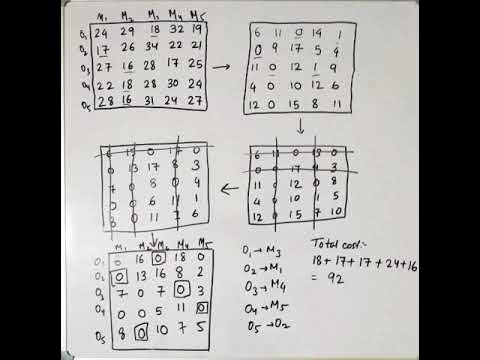 M₁ M₂ M₃ M₄ M₅
O₁ 24 29 18 32 19
O₂ 17 26 34 22 21
O₃ 27 16 28 17 25
O₄ 22 18 28 30 24
O₅ 28 16 31 24 27
6 11 0 14 1
0 9 17 5 4
11 0 12 1 9
4 0 10 12 6
12 0 15 8 11
6 11 0 13 0
0 9 17 4 3
11 0 12 0 8
4 0 10 1 5
12 0 15 7 10
6 15 0 17 0
0 13 17 8 3
7 0 8 0 4
0 0 6 11 1
8 0 11 7 6
M₁ M₂ M₃ M₄ M₅
O₁ 0 16 0 18 0
O₂ 0 13 16 8 2
O₃ 7 0 7 0 3
O₄ 0 0 5 11 0
O₅ 8 0 10 7 5
O₁ → M₃
O₂ → M₁
O₃ → M₄
O₄ → M₅
O₅ → O₂
Total cost:-
18 + 17 + 17 + 24 + 16
= 92